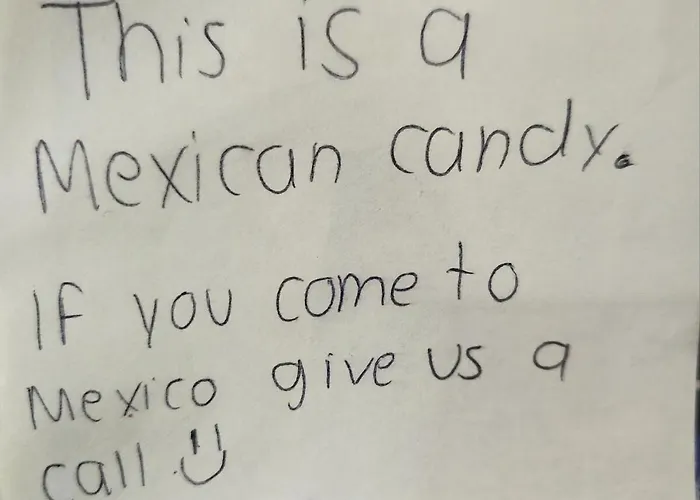 This is a
Mexican candy.
If you come to
Mexico give us a
call :)